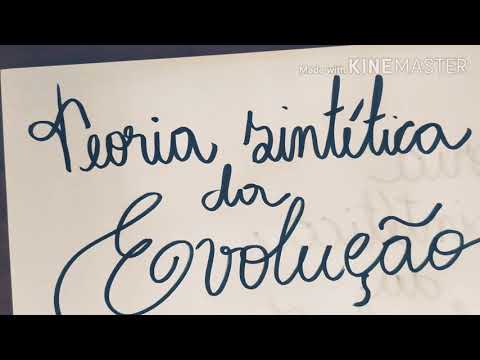 Made with KINEMASTER
Teoria sintética
da
Evolução